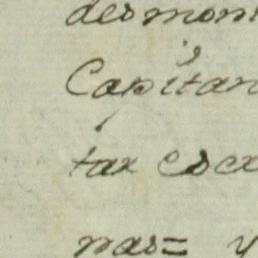 desmon
Capitan
tar esca
nas= y